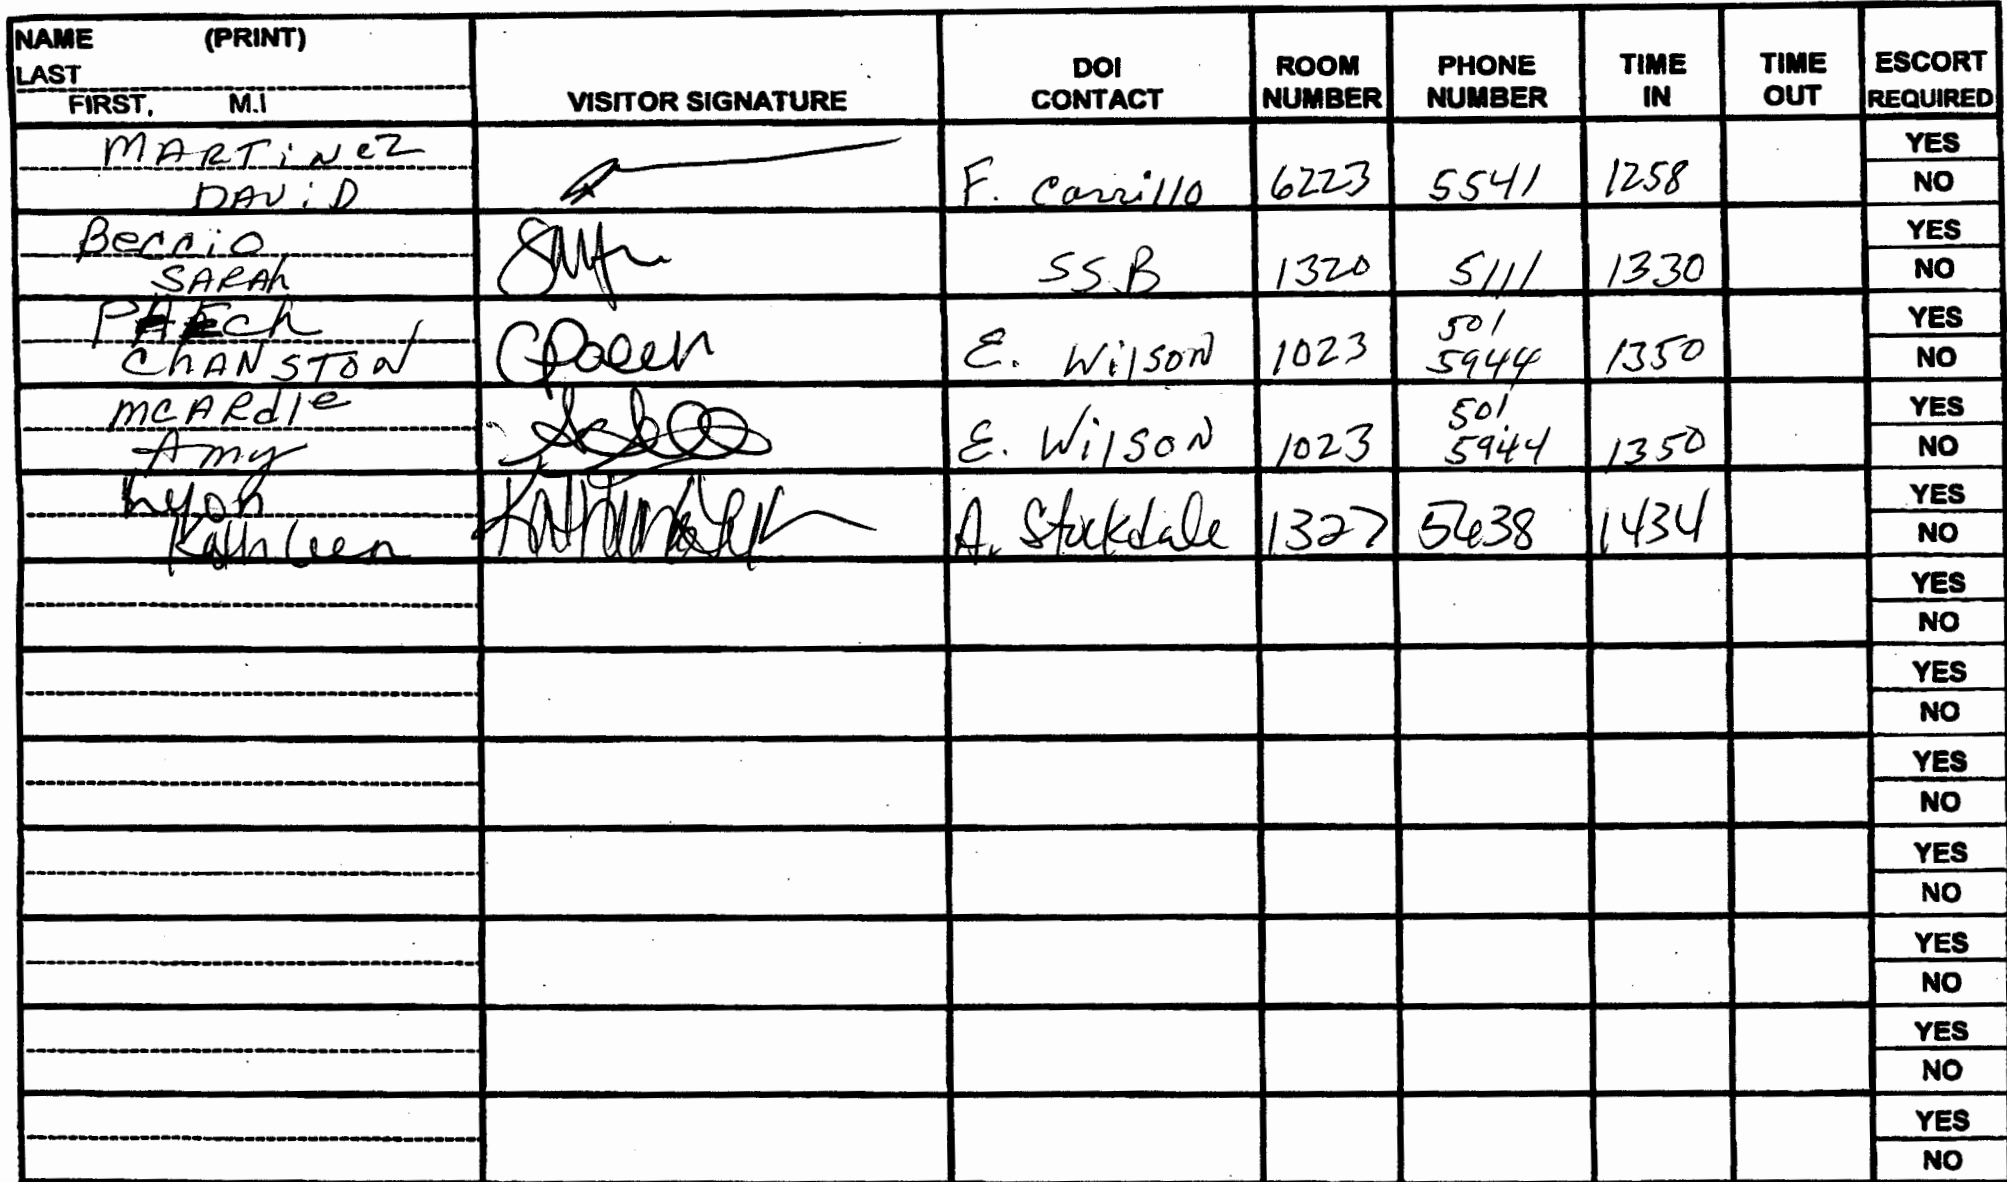 NAME (PRINT)
LAST
FIRST, M.I
VISITOR SIGNATURE
DOI
CONTACT
ROOM
NUMBER
PHONE
NUMBER
TIME
IN
TIME
OUT
ESCORT
REQUIRED
MARTiNez
DAViD
F. Carrillo 6223 5541 1258
YES
NO
SARAh
SS.B 1320 5111 1330
YES
NO
ChANSTON
E. WilsoN 1023 501
5944 1350
YES
NO
mcARdle
Amy
E. WilsoN 1023 501
5944 1350
YES
NO
Lyon
Kathleen
A. Stockdale 1327 5638 1434
YES
NO
YES
NO
YES
NO
YES
NO
YES
NO
YES
NO
YES
NO
YES
NO